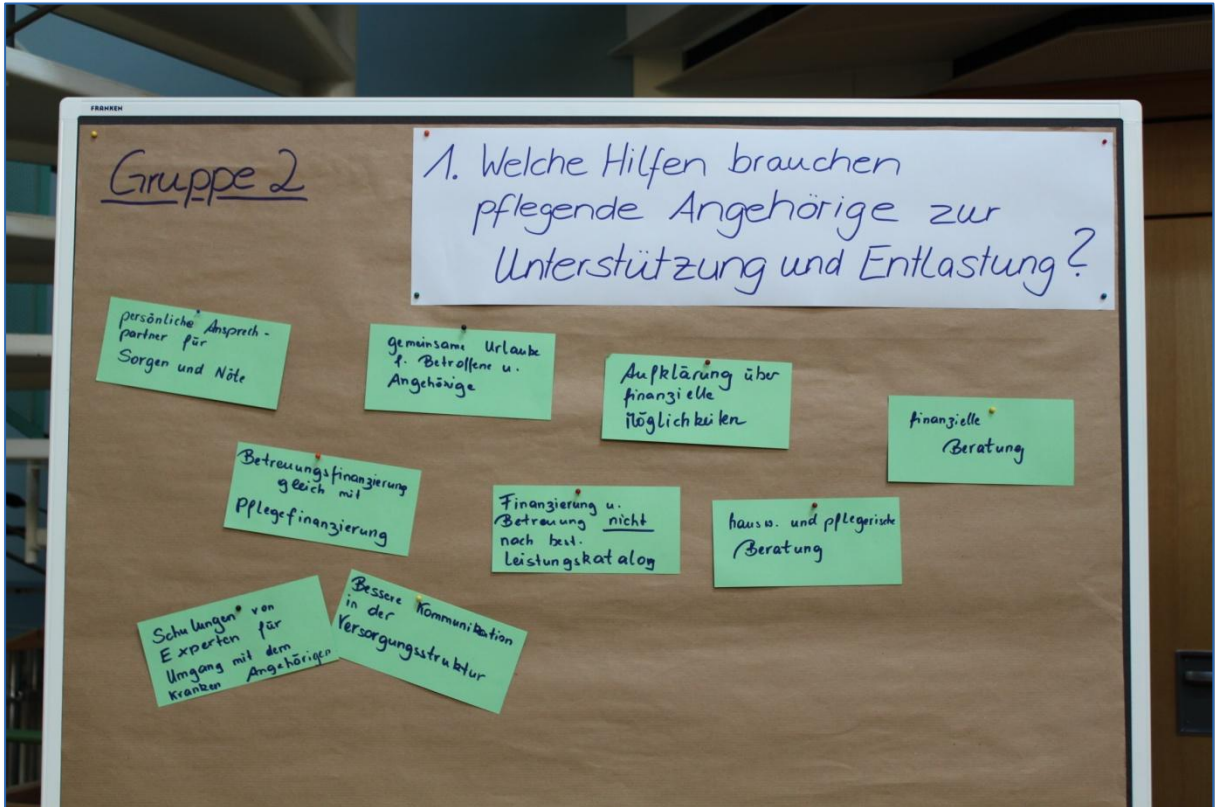 FRANKEN
Gruppe 2
1. Welche Hilfen brauchen
pflegende Angehörige zur
Unterstützung und Entlastung?
persönliche Ansprech-
partner für
Sorgen und Nöte
gemeinsame Urlaube
f. Betroffene u.
Angehörige
Aufklärung über
finanzielle
Möglichkeiten
finanzielle
Beratung
Betreuungsfinanzierung
gleich mit
Pflegefinanzierung
Finanzierung u.
Betreuung nicht
nach best.
Leistungskatalog
hausw. und pflegerische
Beratung
Schulungen von
Experten für
Umgang mit dem
Kranken Angehörigen
Bessere Kommunikation
in der
Versorgungsstruktur